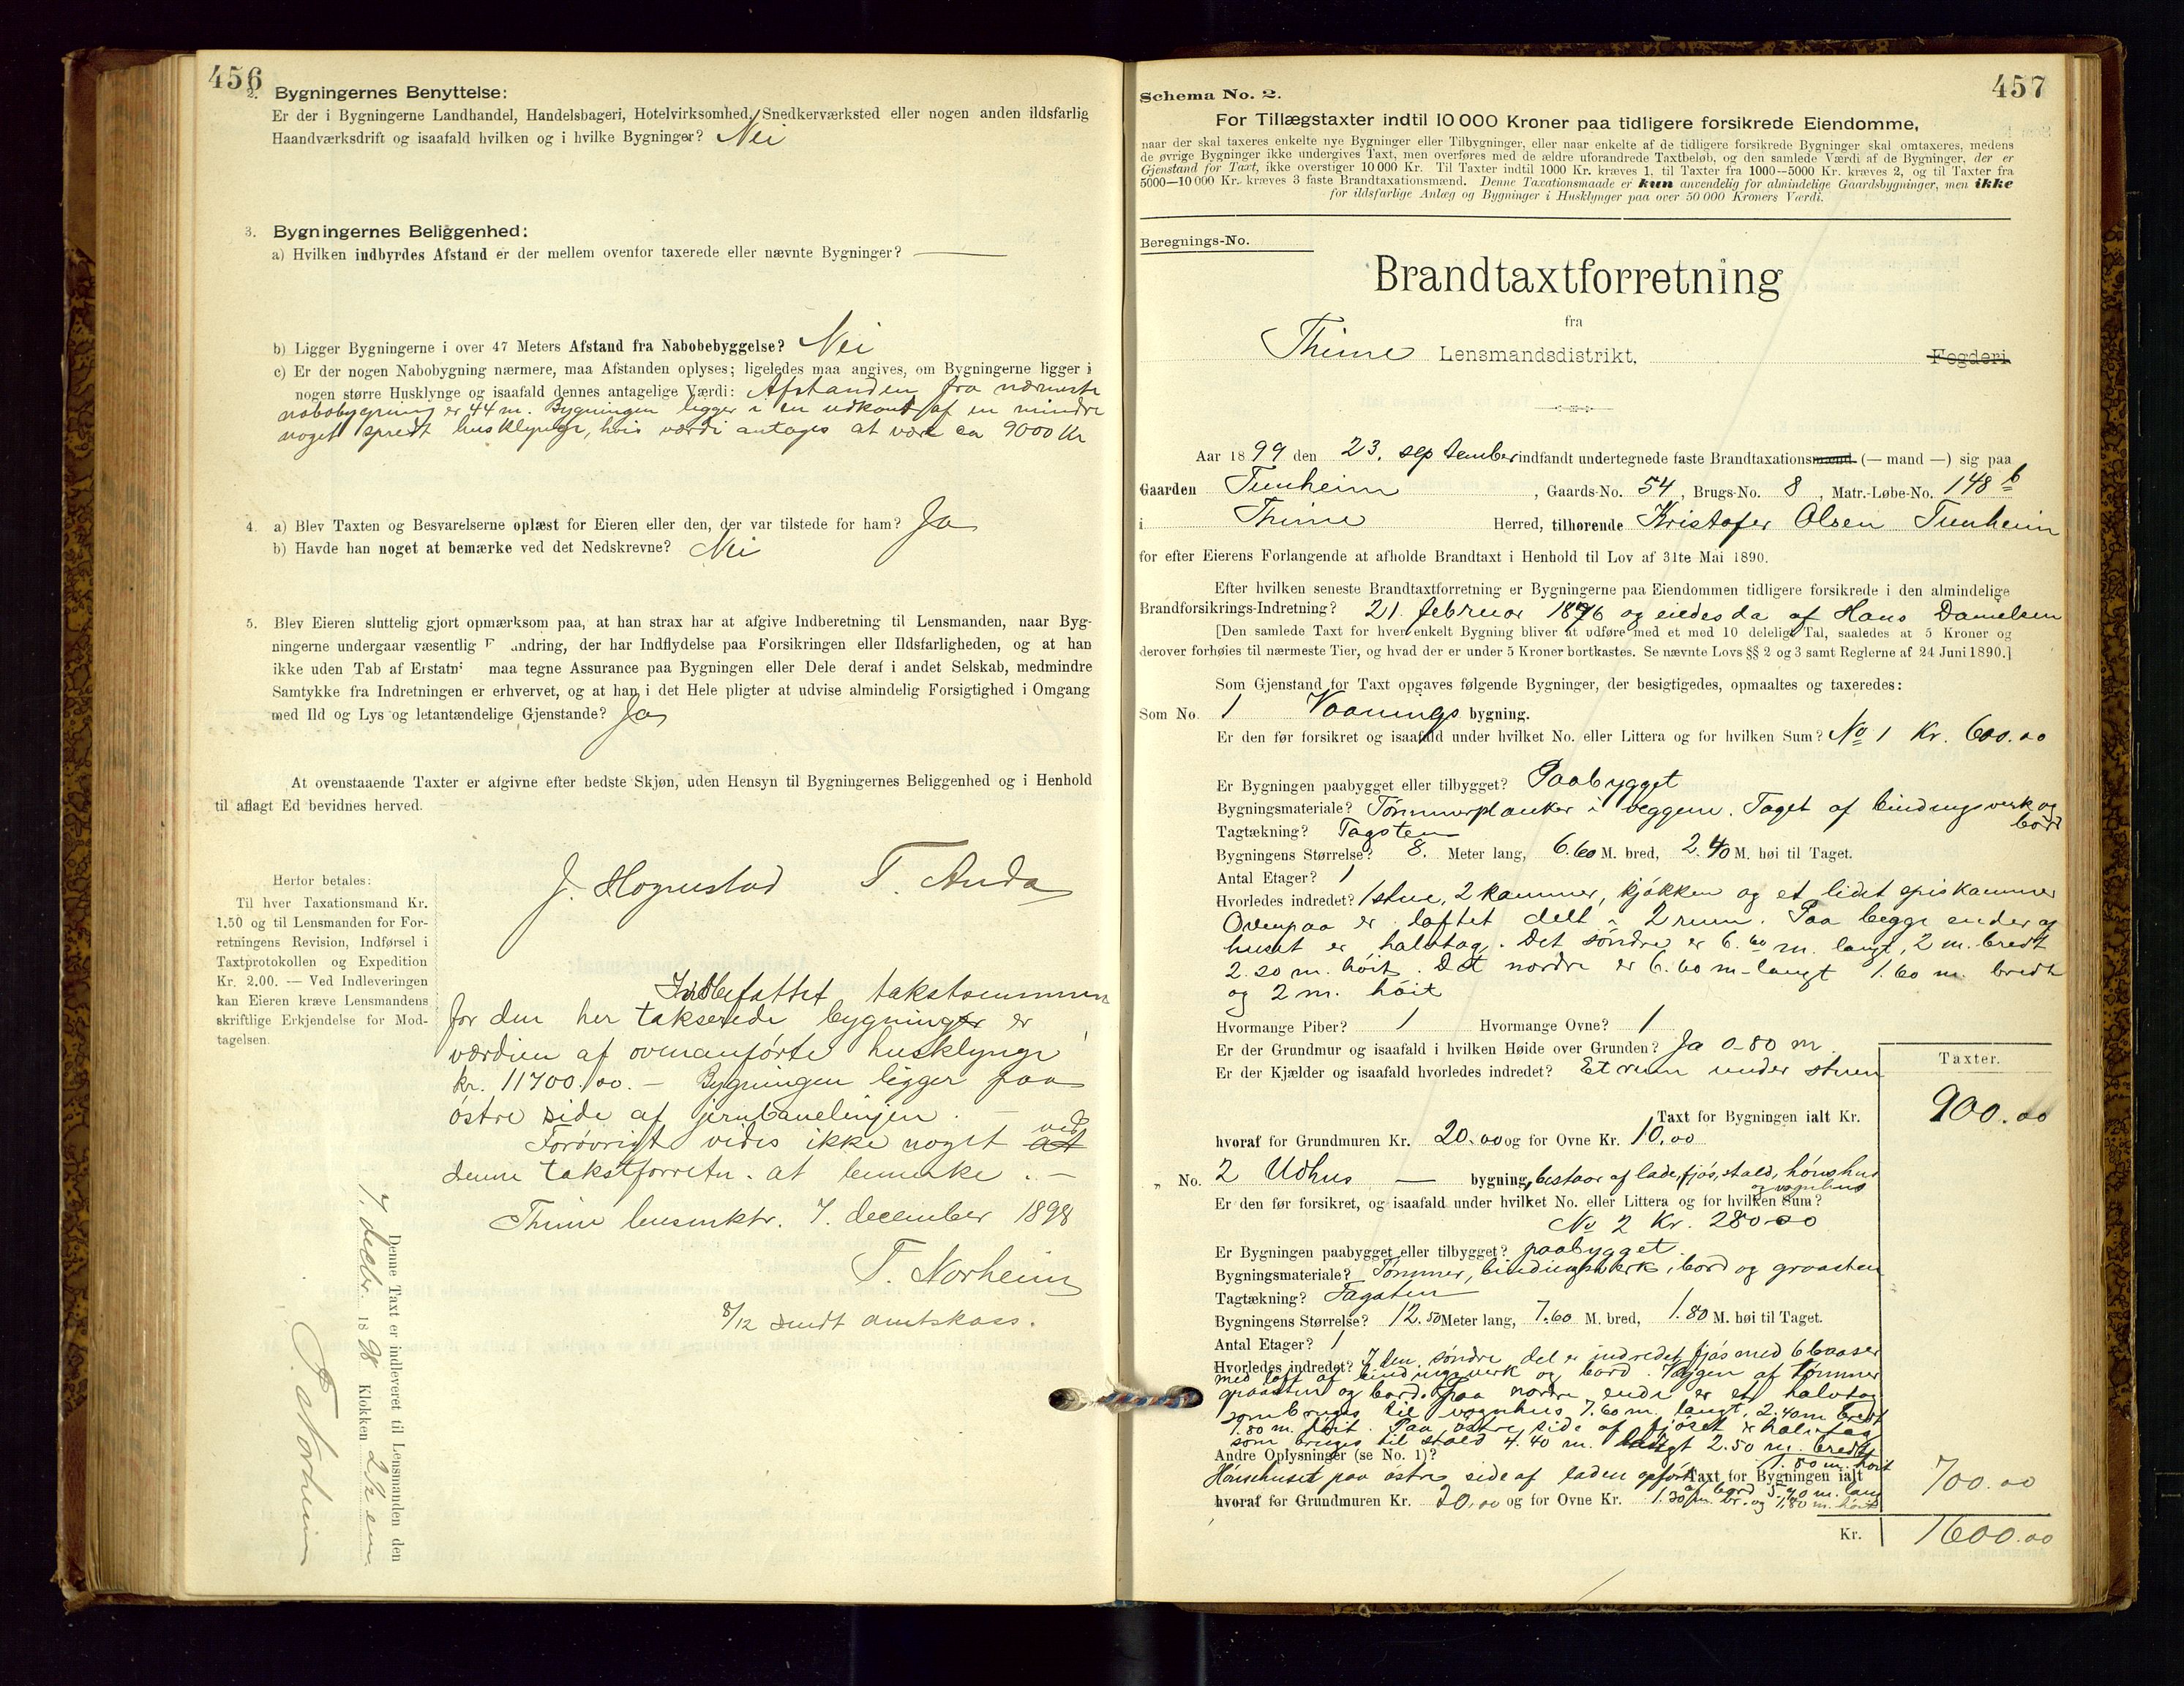 456
2. Bygningernes Benyttelse:
Er der i Bygningerne Landhandel, Handelsbageri, Hotelvirksomhed, Snedkerværksted eller nogen anden ildsfarlig
Haandværksdrift og isaafald hvilken og i hvilke Bygninger? Nei
3. Bygningernes Beliggenhed:
a) Hvilken indbyrdes Afstand er der mellem ovenfor taxerede eller nævnte Bygninger? —
b) Ligger Bygningerne i over 47 Meters Afstand fra Nabobebyggelse? Nei
c) Er der nogen Nabobygning nærmere, maa Afstanden oplyses; ligeledes maa angives, om Bygningerne ligger i
nogen større Husklynge og isaafald dennes antagelige Værdi: Afstanden fra nærmeste
nabobygning er 44 m. Bygningen ligger i en udkant af en mindre
noget spredt husklynge, hvis værdi antages at være ca 9000 Kr
4. a) Blev Taxten og Besvarelserne oplæst for Eieren eller den, der var tilstede for ham? Ja
b) Havde han noget at bemærke ved det Nedskrevne? Nei
5. Blev Eieren sluttelig gjort opmærksom paa, at han strax har at afgive Indberetning til Lensmanden, naar Byg-
ningerne undergaar væsentlig F andring, der har Indflydelse paa Forsikringen eller Ildsfarligheden, og at han
ikke uden Tab af Erstatni maa tegne Assurance paa Bygningen eller Dele deraf i andet Selskab, medmindre
Samtykke fra Indretningen er erhvervet, og at han i det Hele pligter at udvise almindelig Forsigtighed i Omgang
med Ild og Lys og letantændelige Gjenstande? Ja
At ovenstaaende Taxter er afgivne efter bedste Skjøn, uden Hensyn til Bygningernes Beliggenhed og i Henhold
til aflagt Ed bevidnes herved.
J. Hognestad T. Anda
Herfor betales:
Til hver Taxationsmand Kr.
1.50 og til Lensmanden for For-
retningens Revision, Indførsel i
Taxtprotokollen og Expedition
Kr. 2.00. — Ved Indleveringen
kan Eieren kræve Lensmandens
skriftlige Erkjendelse for Mod-
tagelsen.
Indbefattet takstsummen
for den her takserede bygninger er
værdien af ovenanførte husklynge
kr. 11700.00. — Bygningen ligger paa
østre side af jernbanelinjen. —
Forøvrigt vides ikke noget at ved
denne takstforretn. at bemerke. —
Thime lensmktr. 7. december 1898
T. Norheim
8/12 sendt amtskass.
Denne Taxt er indleveret til Lensmanden den
7. decbr 1898 Klokken 2 1/2 em.
T. Norheim
457
Schema No. 2.
For Tillægstaxter indtil 10 000 Kroner paa tidligere forsikrede Eiendomme,
naar der skal taxeres enkelte nye Bygninger eller Tilbygninger, eller naar enkelte af de tidligere forsikrede Bygninger skal omtaxeres, medens
de øvrige Bygninger ikke undergives Taxt, men overføres med de ældre uforandrede Taxtbeløb, og den samlede Værdi af de Bygninger, der er
Gjenstand for Taxt, ikke overstiger 10 000 Kr. Til Taxter indtil 1000 Kr. kræves 1, til Taxter fra 1000—5000 Kr. kræves 2, og til Taxter fra
5000—10 000 Kr. kræves 3 faste Brandtaxationsmænd. Denne Taxationsmaade er kun anvendelig for almindelige Gaardsbygninger, men ikke
for ildsfarlige Anlæg og Bygninger i Husklynger paa over 50 000 Kroners Værdi.
Beregnings-No.
Brandtaxtforretning
fra
Thime Lensmandsdistrikt, Fogderi.
Aar 1899 den 23. september indfandt undertegnede faste Brandtaxationsmænd (— mand —) sig paa
Gaarden Tunheim, Gaards-No. 54, Brugs-No. 8, Matr.-Løbe-No. 148 b
i Thime Herred, tilhørende Kristofer Olsen Tunheim
for efter Eierens Forlangende at afholde Brandtaxt i Henhold til Lov af 31te Mai 1890.
Efter hvilken seneste Brandtaxtforretning er Bygningerne paa Eiendommen tidligere forsikrede i den almindelige
Brandforsikrings-Indretning? 21. februar 1876 og eiedes da af Hans Danielsen
[Den samlede Taxt for hver enkelt Bygning bliver at udføre med et med 10 deleligt Tal, saaledes at 5 Kroner og
derover forhøies til nærmeste Tier, og hvad der er under 5 Kroner bortkastes. Se nævnte Lovs §§ 2 og 3 samt Reglerne af 24 Juni 1890.]
Som Gjenstand for Taxt opgaves følgende Bygninger, der besigtigedes, opmaaltes og taxeredes:
Som No. 1 Vaanings bygning.
Er den før forsikret og isaafald under hvilket No. eller Littera og for hvilken Sum? No 1 Kr. 600.00
Er Bygningen paabygget eller tilbygget? Paabygget
Bygningsmateriale? Tømmerplanker i veggene. Taget af bindingsverk og bord
Tagtækning? Tagsten
Bygningens Størrelse? 8. Meter lang, 6.60 M. bred, 2.40 M. høi til Taget.
Antal Etager? 1
Hvorledes indredet? 1 stue, 2 kammer, kjøkken og et lidet spiskammer
Ovenpaa er loftet delt i 2 rum. Paa begge ender af
huset er halvtag. Det søndre er 6.60 m. langt, 2 m. bredt
2.20 m. høit. Det nordre er 6.60 m. langt 1.60 m. bredt
og 2 m. høit
Hvormange Piber? 1 Hvormange Ovne? 1
Er der Grundmur og isaafald i hvilken Høide over Grunden? Ja 0.80 m.
Er der Kjælder og isaafald hvorledes indredet? Et rum under stuen
Taxter.
Taxt for Bygningen ialt Kr. 900.00
hvoraf for Grundmuren Kr. 20.00 og for Ovne Kr. 10.00
" No. 2 Udhus — bygning, bestaar af lade, fjøs, stald, hønshus
og vognhus
Er den før forsikret, og isaafald under hvilket No. eller Littera og for hvilken Sum?
No 2 Kr. 280.00
Er Bygningen paabygget eller tilbygget? paabygget.
Bygningsmateriale? Tømmer, bindingsverk, bord og graasten
Tagtækning? Tagsten
Bygningens Størrelse? 12.50 Meter lang, 7.60 M. bred, 1.80 M. høi til Taget.
Antal Etager? 1
Hvorledes indredet? I den søndre del er indredet fjøs med 6 baaser
med loft af bindingsverk og bord. Væggen af tømmer
graasten og bord. Paa nordre ende er et halvtag
som bruges til vognhus 7.60 m. langt, 2.40 m bredt
1.80 m. høit. Paa østre side af fjøset er halvtag
som bruges til stald 4.40 m. langt 2.50 m. bredt
1.80 m. høit
Andre Oplysninger (se No. 1)?
Hønsehuset paa østre side af laden opført
af bord 5.40 m. lang
1.30 m. br. og 1.80 m. høit
Taxt for Bygningen ialt 700.00
hvoraf for Grundmuren Kr. 20.00 og for Ovne Kr.
Kr. 1600.00